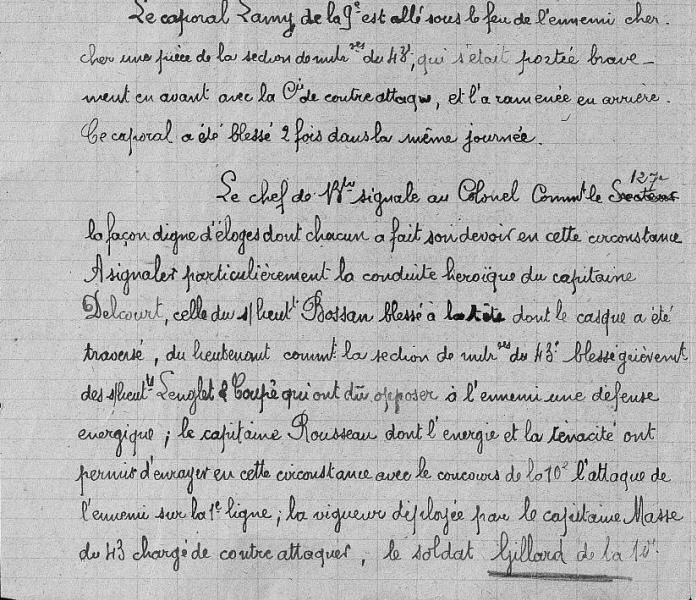 Le caporal Lamy de la 9e est allé sous le feu de l'ennemi cher-
cher une pièce de la section de mitr ses du 43e, qui s'était portée brave-
ment en avant avec la Cie de contre attaque, et l'a ramenée en arrière.
Ce caporal a été blessé 2 fois dans la même journée.
127e
Le chef de Bton signale au Colonel Commt le Secteur
la façon digne d'éloges dont chacun a fait son devoir en cette circonstance
A signaler particulièrement la conduite heroïque du capitaine
Delcourt, celle du s/lieutt Bossan blessé à la tête dont le casque a été
traversé, du lieutenant commt la section de mitr ses du 43e blessé grièvemt
des s/lieutts Lenglet & Coupé qui ont dû opposer à l'ennemi une défense
energique; le capitaine Rousseau dont l'energie et la tenacité ont
permis d'enrayer en cette circonstance avec le concours de la 10e l'attaque de
l'ennemi sur la 1e ligne; la vigueur déployée par le capitaine Masse
du 43 chargé de contre attaquer, le soldat Gillard de la 10e